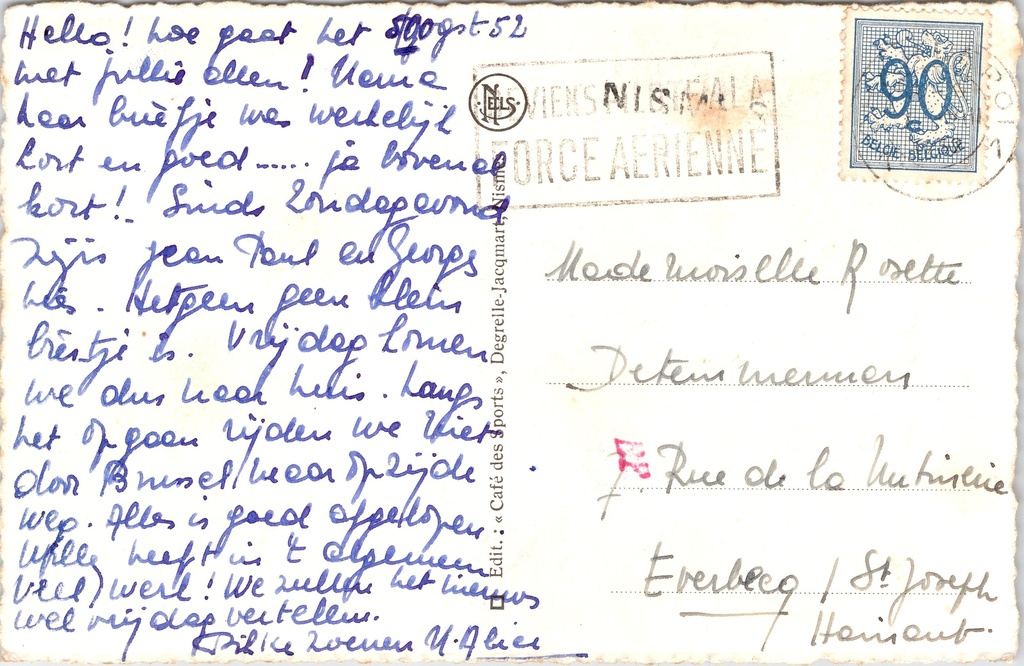 Hello! hoe gaat het oogst 52
met jullie allen! Mama
haar briefje was werkelijk
kort en goed...... ja bovenal
kort! Sinds Zondagavond
zijn jean Paul en Georges
hier. Hetgeen geen klein
biestje is. Vrijdag komen
we dus naar huis. Langs
het op gaan rijden we niet
door Brussel maar op zijde
weg. Alles is goed afgelopen.
heeft in 't algemeen
veel werk! We zullen het nieuws
wel vrijdag vertellen.
Dikke zoenen Alice
NELS
Edit. : « Café des Sports », Degrelle-Jacqmart, Nismes
NISMES
VIENS A LA
FORCE AERIENNE
90
BELGIE BELGIQUE
Mademoiselle Rosette
Detemmerman
7. Rue de la
Everbecq / St Joseph
Hainaut.